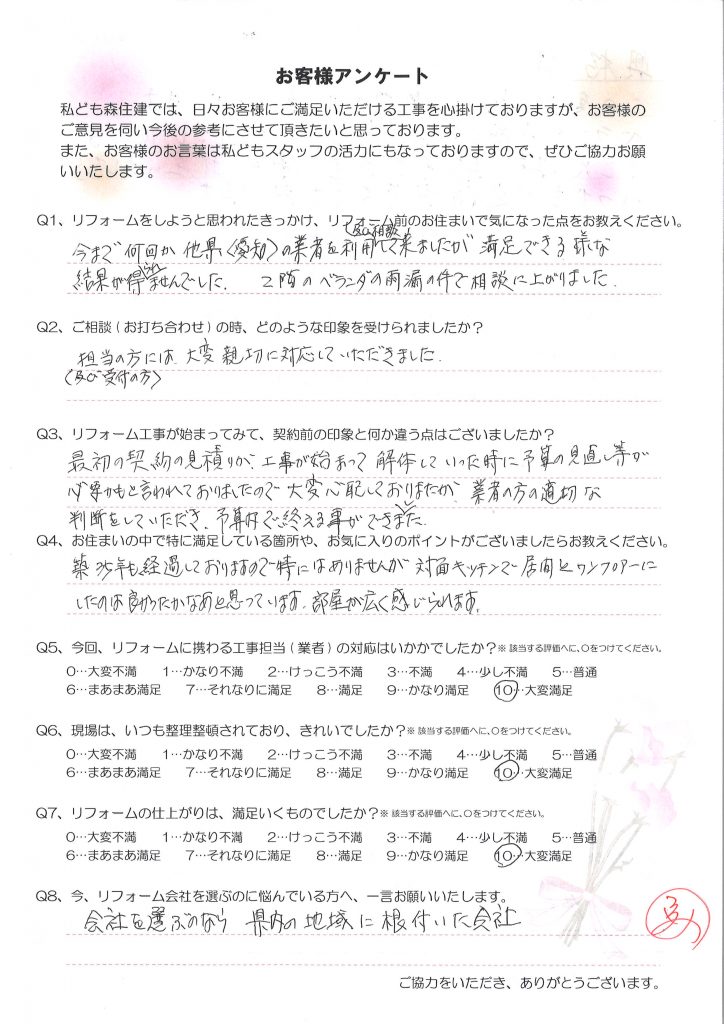 お客様アンケート
私ども森住建では、日々お客様にご満足いただける工事を心掛けておりますが、お客様の
ご意見を伺い今後の参考にさせて頂きたいと思っております。
また、お客様のお言葉は私どもスタッフの活力にもなっておりますので、ぜひご協力お願
いいたします。
Q1、リフォームをしようと思われたきっかけ、リフォーム前のお住まいで気になった点をお教えください。
(及び相談)
今まで何回か他県〈愛知〉の業者を利用して来ましたが満足できる様な
結果が得られませんでした。 2階のベランダの雨漏の件で相談に上がりました。
Q2、ご相談(お打ち合わせ)の時、どのような印象を受けられましたか?
担当の方には、大変親切に対応していただきました。
〈及び受付の方〉
Q3、リフォーム工事が始まってみて、契約前の印象と何か違う点はございましたか?
最初の契約の見積りが、工事が始まって解体していった時に予算の見直し等が
必要かもと言われておりましたので大変心配しておりましたが、業者の方の適切な
判断をしていただき、予算内で終える事ができました。
Q4、お住まいの中で特に満足している箇所や、お気に入りのポイントがございましたらお教えください。
築 年も経過しておりますので特にはありませんが対面キッチンで居間とワンフロアーに
したのは良かったかなあと思っています。部屋が広く感じられます。
Q5、今回、リフォームに携わる工事担当(業者)の対応はいかかでしたか?※該当する評価へに、○をつけてください。
0…大変不満 1…かなり不満 2…けっこう不満 3…不満 4…少し不満 5…普通
6…まあまあ満足 7…それなりに満足 8…満足 9…かなり満足 10…大変満足
Q6、現場は、いつも整理整頓されており、きれいでしたか?※該当する評価へに、○をつけてください。
0…大変不満 1…かなり不満 2…けっこう不満 3…不満 4…少し不満 5…普通
6…まあまあ満足 7…それなりに満足 8…満足 9…かなり満足 10…大変満足
Q7、リフォームの仕上がりは、満足いくものでしたか?※該当する評価へに、○をつけてください。
0…大変不満 1…かなり不満 2…けっこう不満 3…不満 4…少し不満 5…普通
6…まあまあ満足 7…それなりに満足 8…満足 9…かなり満足 10…大変満足
Q8、今、リフォーム会社を選ぶのに悩んでいる方へ、一言お願いいたします。
会社を選ぶのなら 県内の地域に根付いた会社
ご協力をいただき、ありがとうございます。